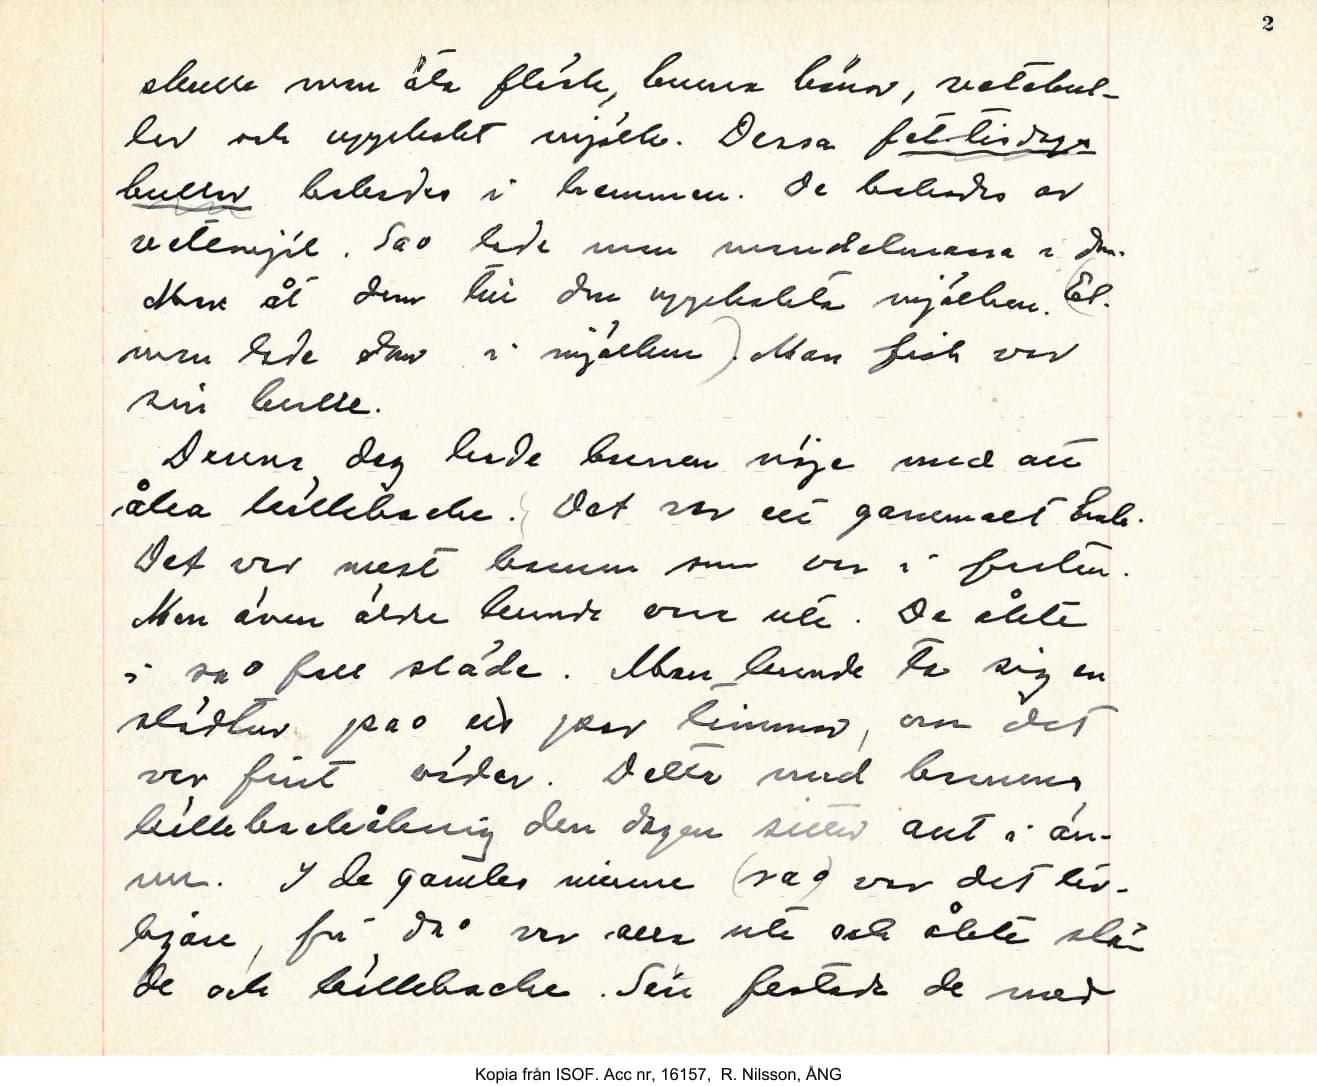 2
skulle man äta fläsk, bruna bönor, vetebul-
lar och uppkokt mjölk. Dessa fettisdags
bullar bakades i hemmen. De bakades av
vetemjöl. Sao hade man mandelmassa i dem.
Man åt dem till den uppkokta mjölken. (El.
man lade dem i mjölken). Man fick var
sin bulle.
Denna dag hade barnen nöje med att
åka källkbacke. Det var ett gammalt bruk.
Det var mest barnen som var i farten.
Men även äldre kunde vara ute. De åkte
i sao fall släde. Man kunde ta sig en
slädtur pao ett par timmar, om det
var fint väder. Detta med barnens
källkbackåkning den dagen sitter ant i än-
nu. I de gamlas minne (sa) var det liv-
ligare, för dao var alla ute och åkte slä-
de och källkbacke. Sen festade de med
Kopia från ISOF. Acc nr, 16157, R. Nilsson, ÅNG